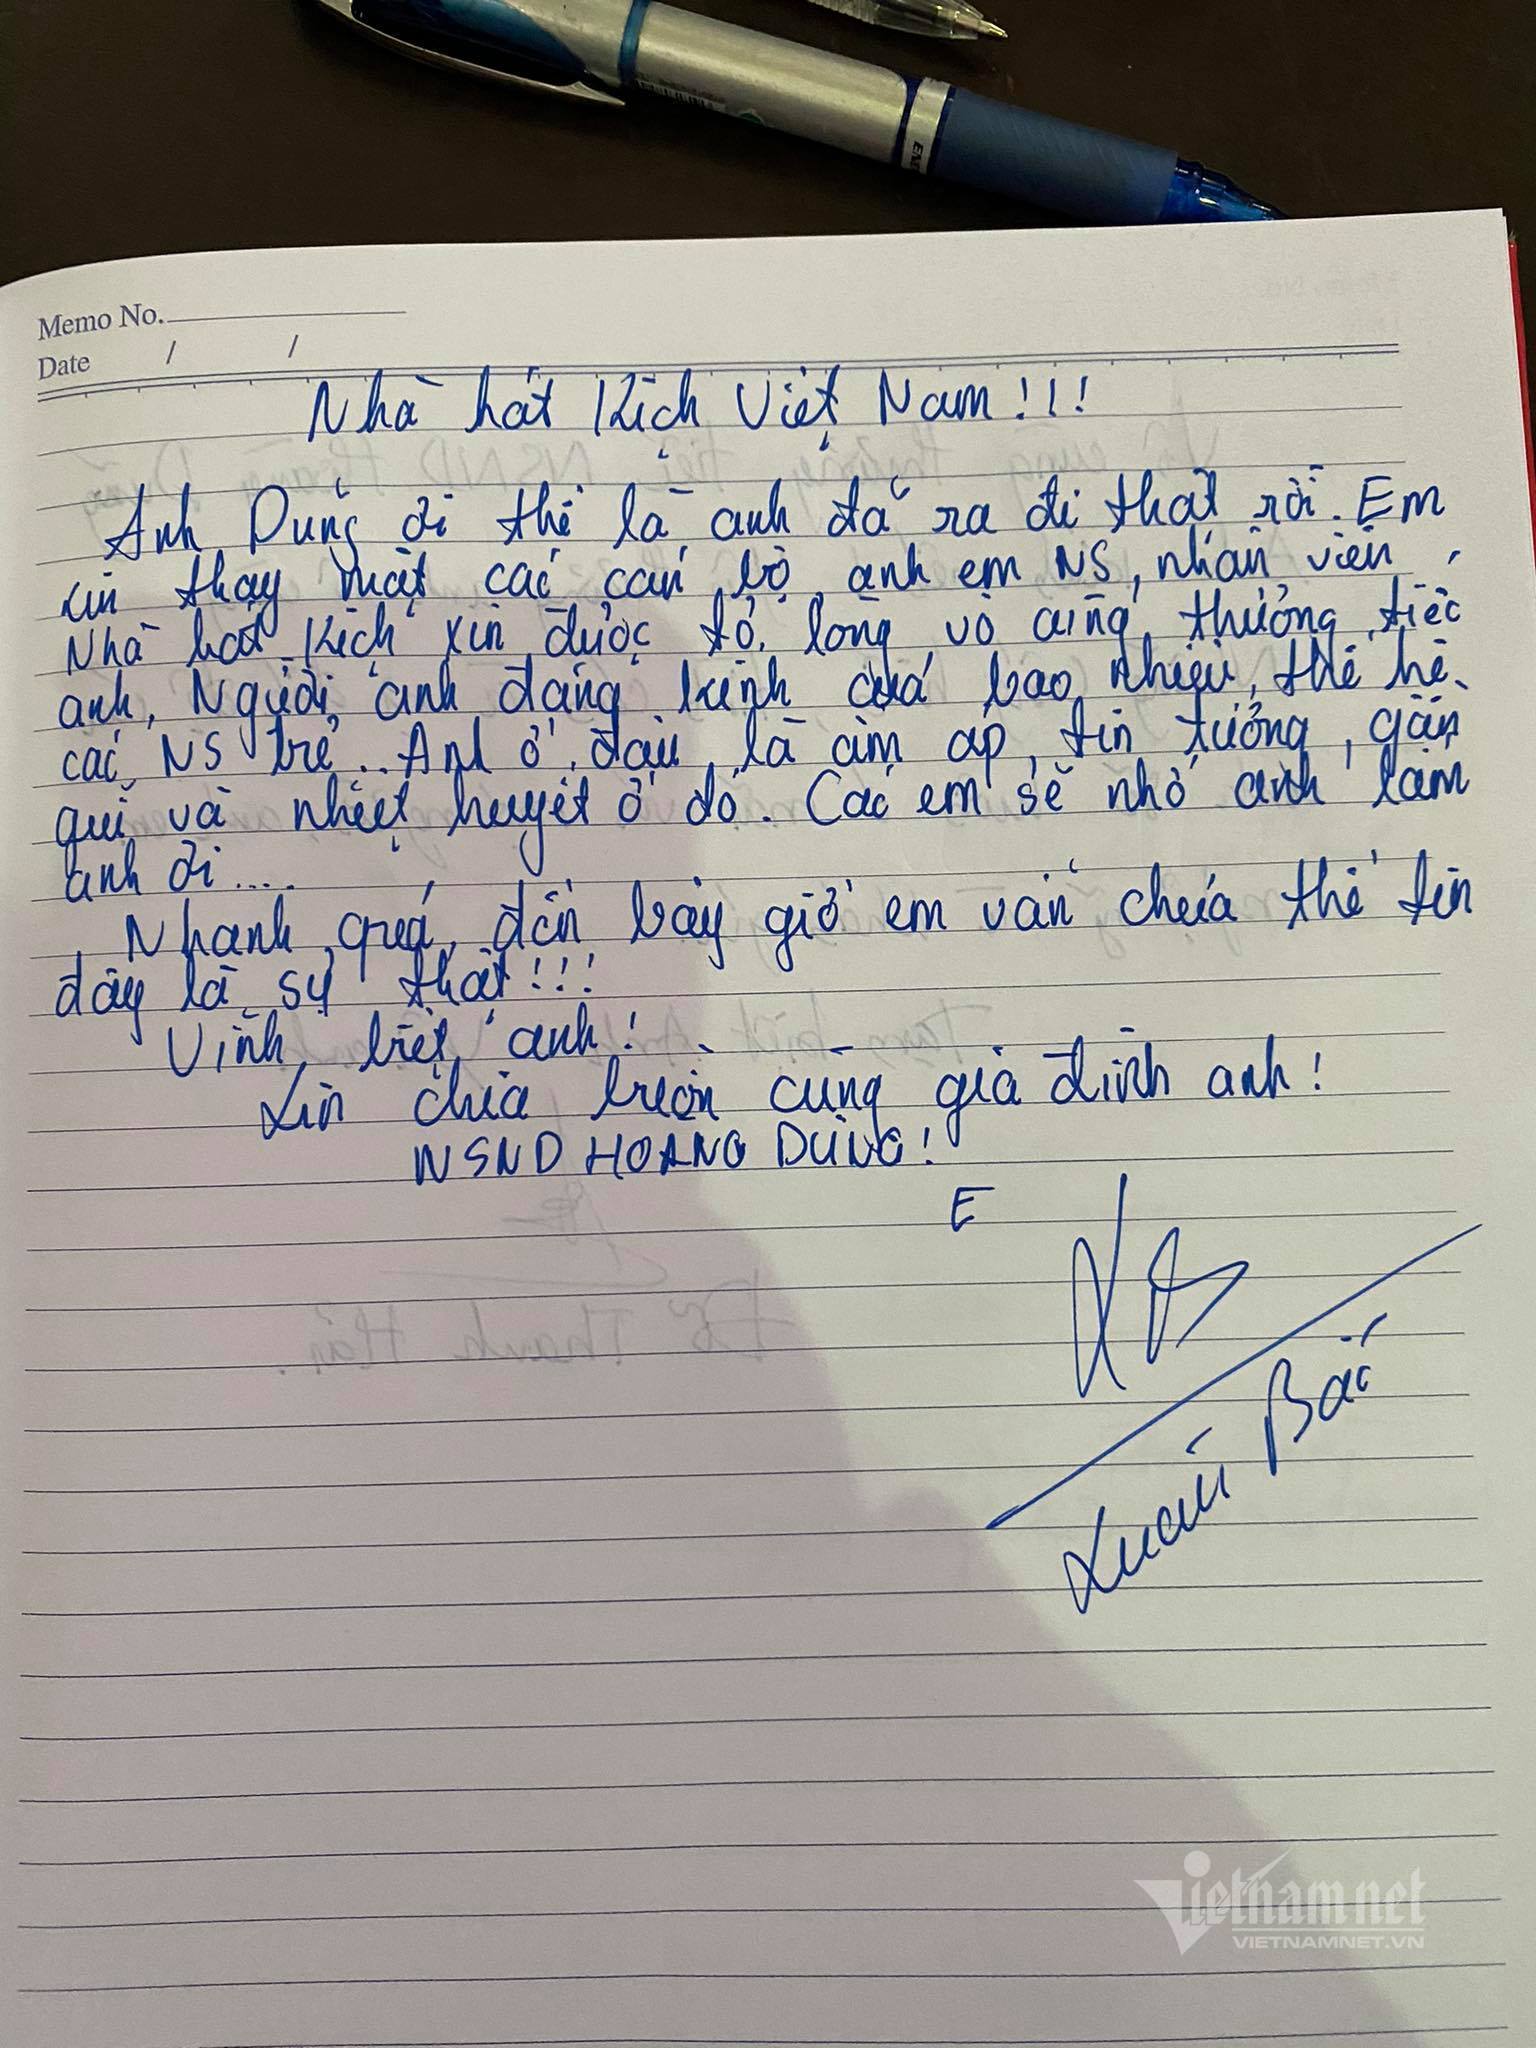 Memo No.
Date / /
Nhà hát Kịch Việt Nam!!!
Anh Dũng ơi thế là anh đã ra đi thật rồi. Em
xin thay mặt các cán bộ, anh em NS, nhân viên
Nhà hát Kịch xin được tỏ lòng vô cùng thương tiếc
anh, Người anh đáng kính của bao nhiêu thế hệ
các NS trẻ... Anh ở đâu là ấm áp, tin tưởng, gần
gũi và nhiệt huyết ở đó. Các em sẽ nhớ anh lắm
anh ơi....
Nhanh quá, đến bây giờ em vẫn chưa thể tin
đây là sự thật!!!
Vĩnh biệt anh!
Xin chia buồn cùng gia đình anh!
NSND HOÀNG DŨNG!
E
Xuân Bắc
Vietnamnet
VIETNAMNET.VN